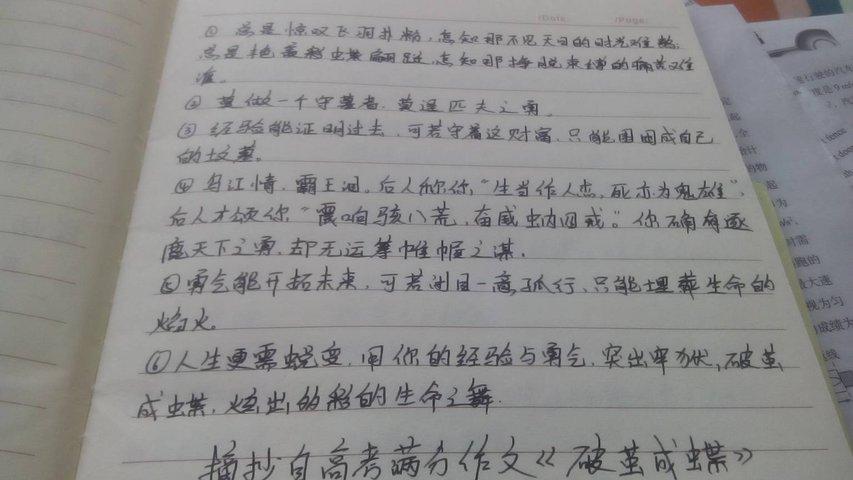 /Date: /Page:
① 总是惊叹飞羽扑粉,怎知那不见天日的时光难熬;
总是艳羡彩蝶翩跹,怎知那挣脱束缚的痛苦难
准。
② 莫做一个守墓者,莫逞匹夫之勇。
③ 经验能证明过去,可若守着这财富,只能困囿成自己
的坟墓。
④ 乌江情,霸王泪。后人称你,“生当作人杰,死亦为鬼雄”,
后人才颂你“震响骇八荒,奋威蚋四戎。”你确有逐
鹿天下之勇,却无运筹帷幄之谋.
⑤ 勇气能开拓未来,可若一意孤行,只能埋葬生命的
焰火。
⑥ 人生更需蜕变,用你的经验与勇气,突出牢狱,破茧
成蝶,炫出多彩的生命之舞.
摘抄自高考满分作文《破茧成蝶》